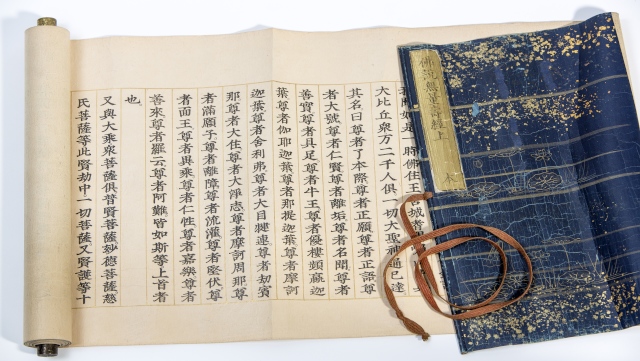 佛說無量壽經上
聞如是 時佛住王舍城耆
大比丘衆万二千人俱一切大聖神通已達
其名曰尊者了本際尊者正願尊者正語尊
者大號尊者仁賢尊者離垢尊者名聞尊者
善實尊者具足尊者牛王尊者優樓頻蠡迦
葉尊者伽耶迦葉尊者那提迦葉尊者摩訶
迦葉尊者舍利弗尊者大目揵連尊者劫賓
那尊者大住尊者大淨志尊者摩訶周那尊
者滿願子尊者離障尊者流灌尊者堅伏尊
者面王尊者異乘尊者仁性尊者嘉樂尊者
善來尊者羅云尊者阿難皆如斯等上首者
也
又與大乘衆菩薩俱普賢菩薩妙德菩薩慈
氏菩薩等此賢劫中一切菩薩又賢護等十